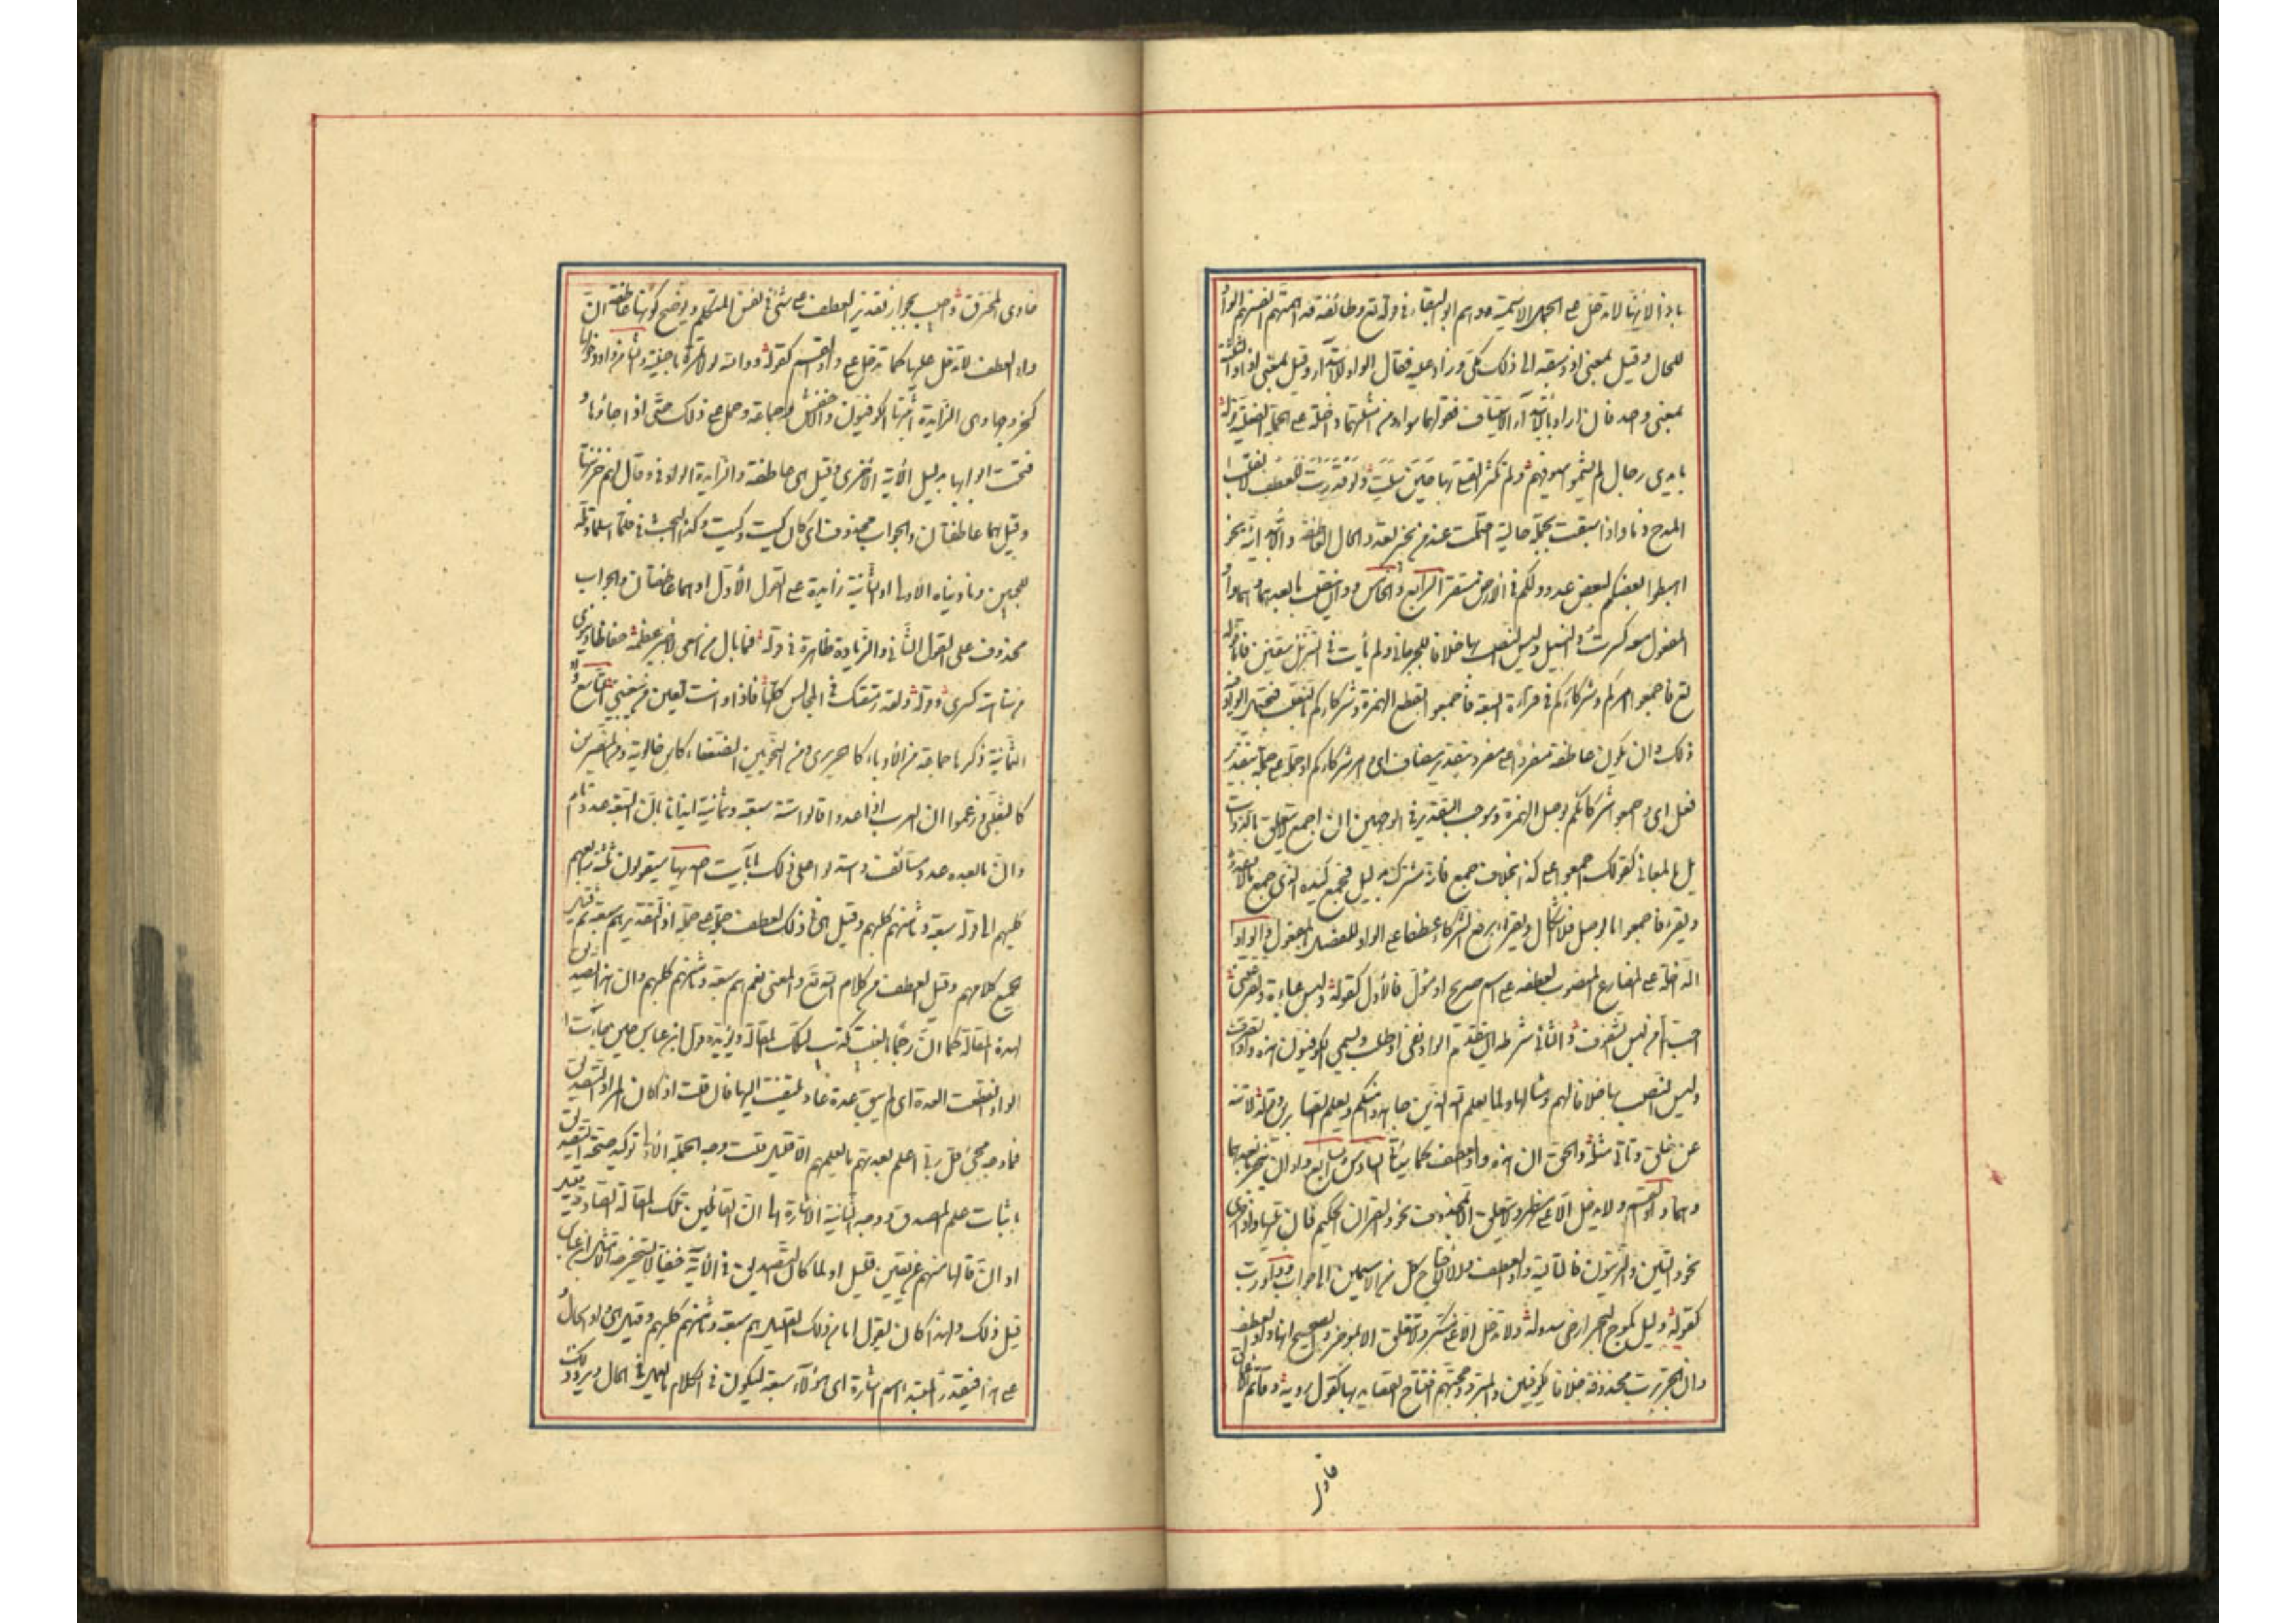 باذا لانها لا تدخل على الجمل الاسمية ووهم ابو البقاء في قوله تع وطائفة قد اهمتهم انفسهم الواو
للحال وقيل بمعنى اذ وسبقه الى ذلك مكي وزاد عليه فقال الواو للابتداء وقيل بمعنى اذ
بمعنى واحد فان اراد بالابتداء الاستيناف فقولهما سواء ومن امثلتها داخلة على الجملة الفعلية قوله
بايدي رجال لم يشيموا سيوفهم ولم تكثر القتلى بها حين سلت ولو قدرت للعطف لانقلب
المدح ذما واذا سبقت بجملة حالية احتملت عند من يجيز تعدد الحال العاطفة والابتدائية نحو
اهبطوا بعضكم لبعض عدو ولكم في الارض مستقر الرابع والخامس واوان ينتصب ما بعدهما وهما واو
المفعول معه كسرت والنيل وليس النصب بها خلافا للجرجاني ولم يأت في التنزيل بيقين فاما قوله
تع فاجمعوا امركم وشركاءكم في قراءة السبعة فأجمعوا بقطع الهمزة وشركاءكم بالنصب فتحتمل الواو فيه
ذلك وان يكون عاطفة مفردا على مفرد بتقدير مضاف اى وامر شركاءكم او جملة على جملة بتقدير
فعل اى واجمعوا شركائكم بوصل الهمزة وموجب التقدير في الوجهين ان اجمع لا يتعلق بالذوات
بل بالمعاني كقولك اجمعوا على كذا بخلاف جمع فانه مشترك بدليل فجمع كيده الذي جمع مالا وعدده
ويقرء فاجمعوا بالوصل فلا اشكال ويقراء برفع الشركاء عطفا على الواو للفصل بالمفعول والواو
الداخلة على المضارع المنصوب لعطفه على اسم صريح او مؤول فالاول كقوله ولبس عباءة وتقر عيني
احب الى من لبس الشفوف والثاني شرطه ان يتقدم الواو نفي او طلب ويسمي الكوفيون هذه واو الصرف
وليس النصب بها خلافا لهم ومثالها ولما يعلم الله الذين جاهدوا منكم ويعلم الصابرين وقوله لا تنه
عن خلق وتأتي مثله والحق ان هذه واو العطف كما سيأتي السادس والسابع واوان ينجر ما بعدهما
وهما واو القسم ولا تدخل الا على مظهر ولا تتعلق الا بمحذوف نحو والقران الحكيم فان تلتها واو اخرى
نحو والتين والزيتون فالتالية واو العطف والا لاحتاج كل من الاسمين الى جواب وواو رب
كقوله وليل كموج البحر ارخى سدوله ولا تدخل الا على منكر ولا تتعلق الا بموخر والصحيح انها واو العطف
وان الجر برب محذوفة خلافا للكوفيين والمبرد وحجتهم افتتاح القصائد بها كقول روبة وقاتم الاعماق
خاوى
خاوى المخترق واجيب بجواز تقدير العطف على شئ في نفس المتكلم ويوضح كونها عاطفة ان
واو العطف لا تدخل عليها كما تدخل على واو القسم كقوله ووالله لولا تمره ما حببته والثامن واو دخولها
كخروجها وهى الزايدة اثبتها الكوفيون والاخفش وجماعة وحمل على ذلك حتى اذا جاؤها و
فتحت ابوابها بدليل الآية الاخرى وقيل هى عاطفة والزايدة الواو في وقال لهم خزنتها
وقيل هما عاطفتان والجواب محذوف اى كان كيت وكيت وكذا البحث في فلما اسلما وتله
للجبين وناديناه الاولى او الثانية زايدة على القول الاول او هما عاطفتان والجواب
محذوف على القول الثاني والزيادة ظاهرة في قوله فما بال من اسعى لاجبر عظمه حفاظا وينوى
من سفاهته كسرى وقوله ولقد رمقتك في المجالس كلها فاذا وانت تعين من يبغيني التاسع واو
الثمانية ذكرها جماعة من الادباء كالحريرى ومن النحويين الضعفاء كابن خالوية ومن المفسرين
كالثعلبي وزعموا ان العرب اذا عدوا قالوا ستة سبعة وثمانية ايذانا بان السبعة عدد تام
وان ما بعده عدد مستأنف واستدلوا على ذلك بآيات احديها سيقولون ثلثة رابعهم
كلبهم الى قوله سبعة وثامنهم كلبهم وقيل هى في ذلك لعطف جملة على جملة اذ التقدير هم سبعة ثم قيل
الجميع كلامهم وقيل العطف من كلام الله تع والمعنى نعم هم سبعة وثامنهم كلبهم وان هذا تصديق
لهذه المقالة كما ان رجما بالغيب تكذيب لتلك المقالة ويؤيده قول ابن عباس حين جاءت
الواو انقطعت العدة اى لم يبق عدة عاد يلتفت اليها فان قلت اذا كان المراد التصديق
فما وجه مجئ قل ربي اعلم بعدتهم ما يعلمهم الا قليل قلت وجه الجملة الاولى توكيد صحة التصديق
باثبات علم المصدق ووجه الثانية الاشارة الى ان القائلين تلك المقالة الصادقة
او ان قالها منهم عن يقين قليل او لما كان التصديق في الآية خفيا لا يستخرجه الا مثل ابن عباس
قيل ذلك ولهذا كان يقول انا من ذلك القليل هم سبعة وثامنهم كلبهم وقيل هى واو الحال
على هذا فيقدر المبتداء اسم اشارة اى هؤلاء سبعة ليكون في الكلام ما يعمل في الحال ويرد ذلك